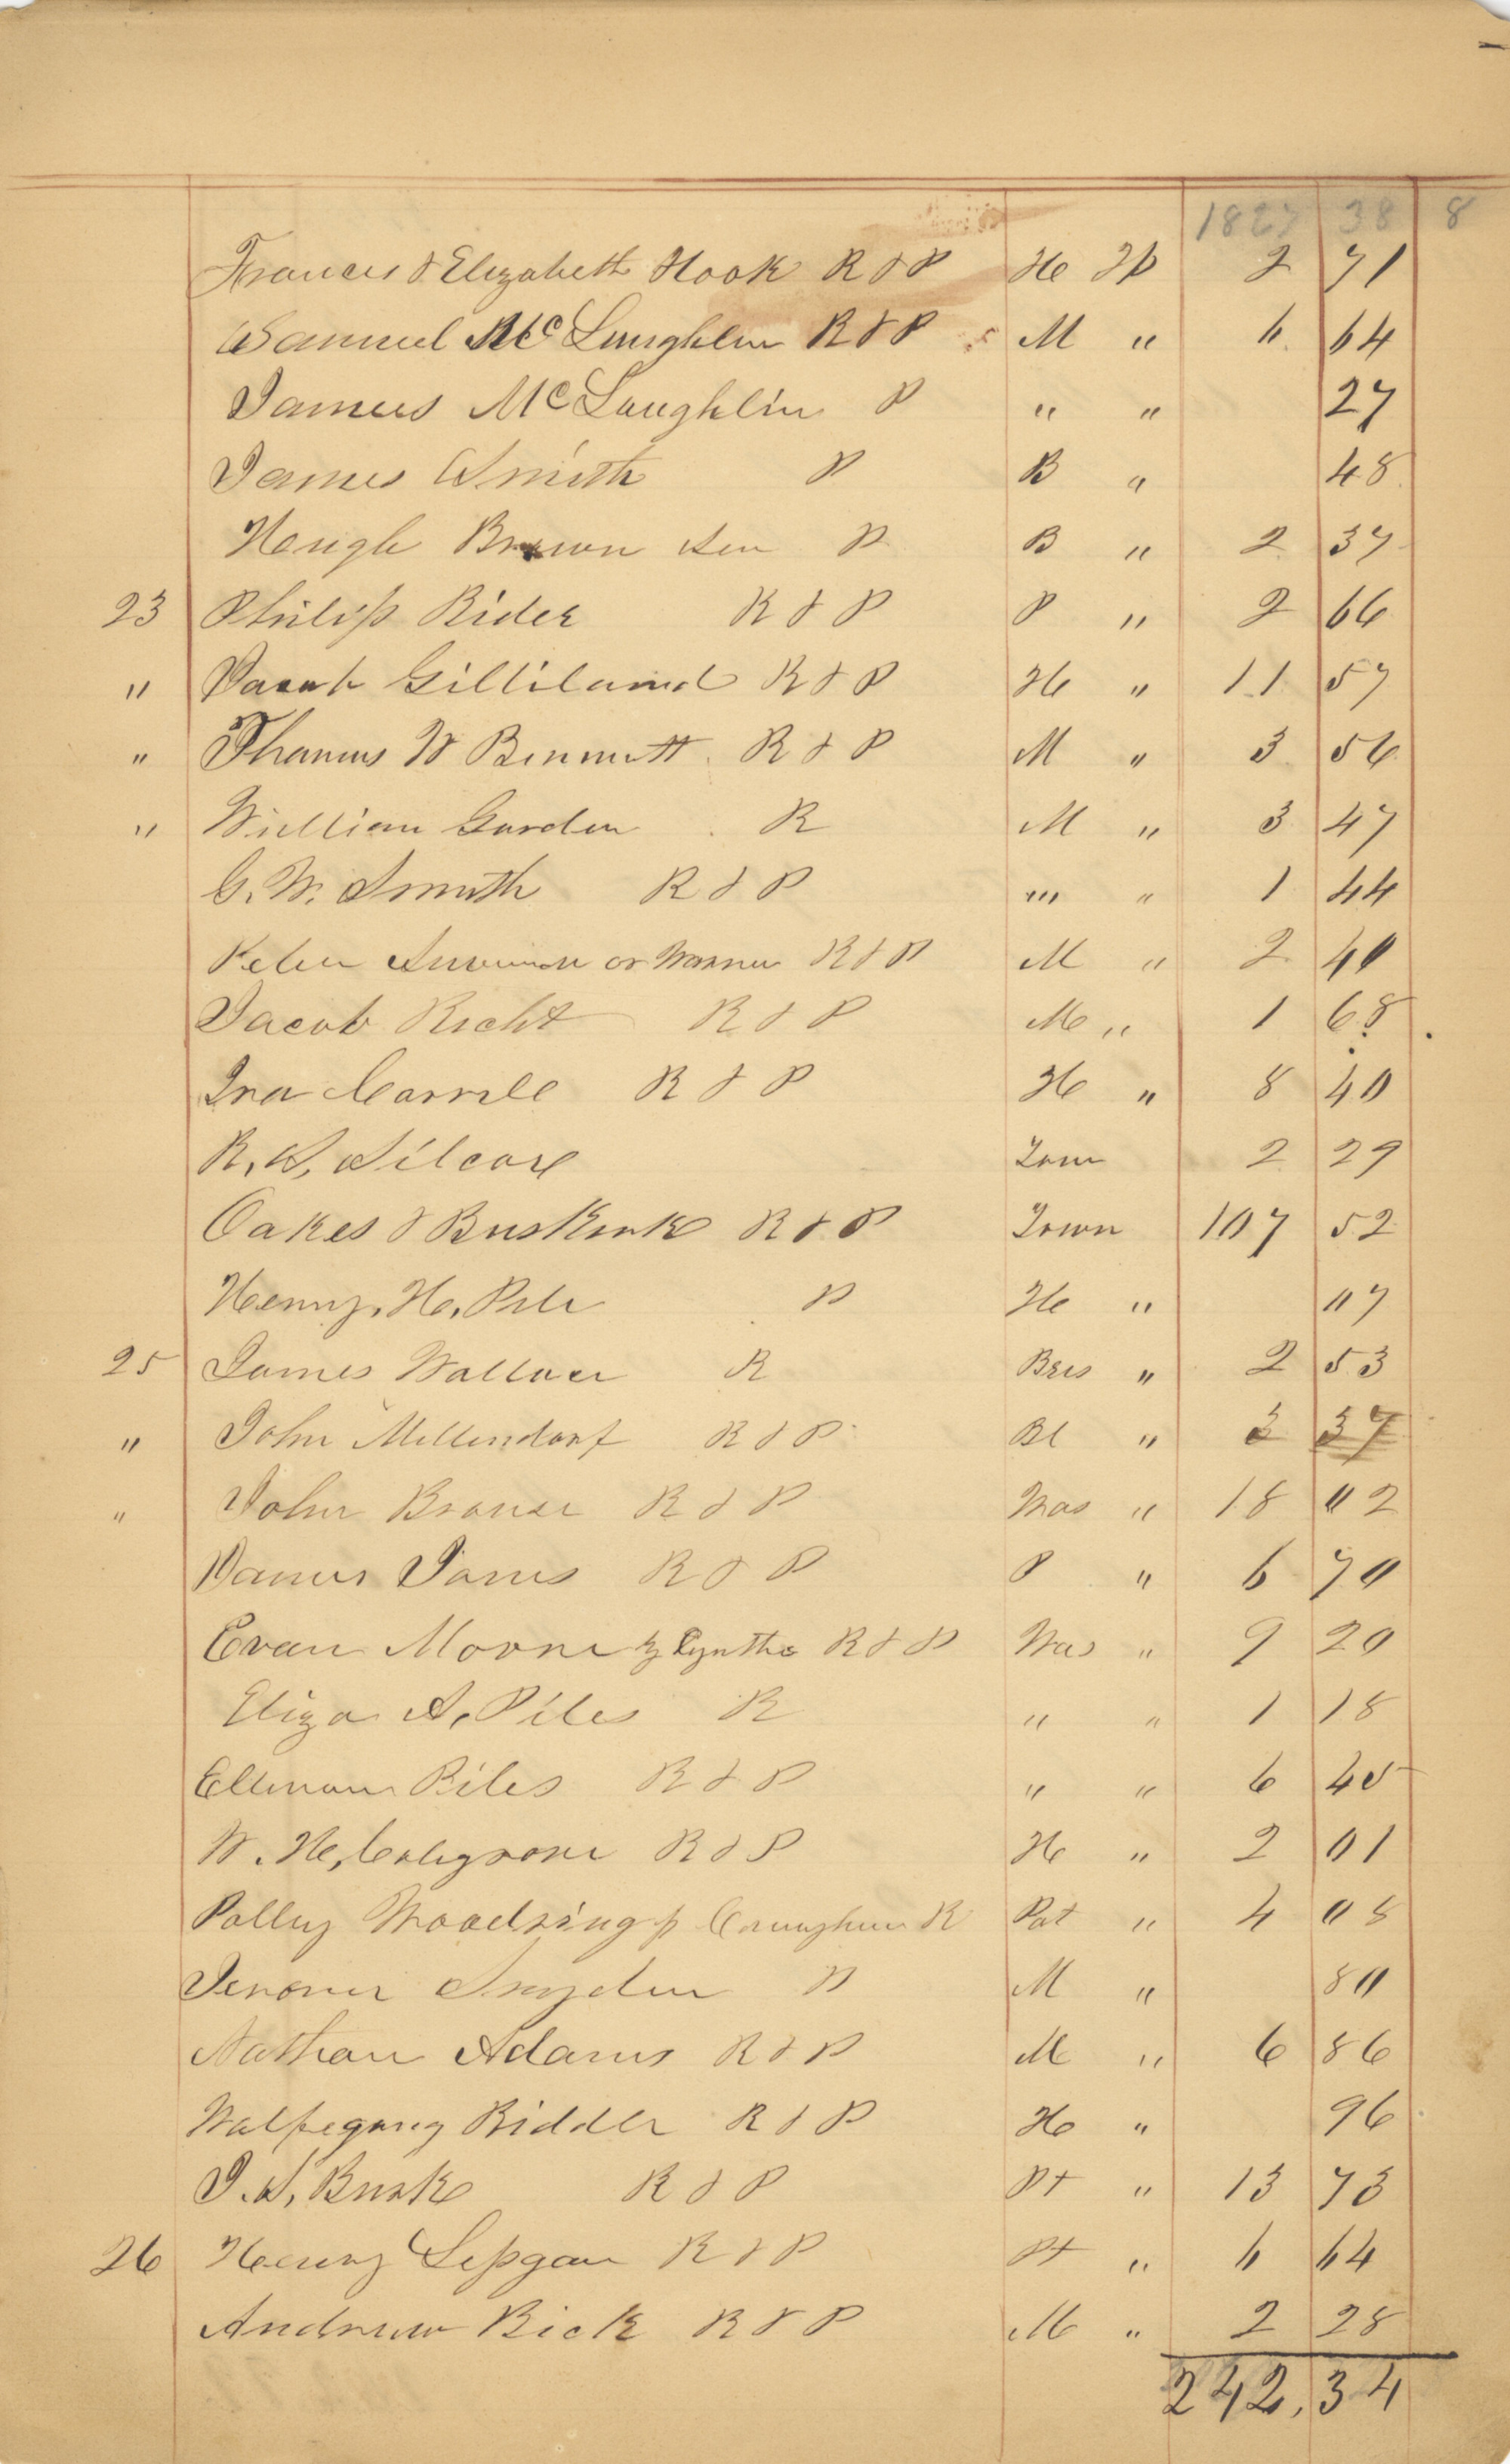 1827 38 8
Francis & Elizabeth Hook R & P He Tp 2 71
Samuel McLaughlin R & P M " 6 64
James McLaughlin P " " 27
James Smith P B " 48
Heugh Brown Sen P B " 2 37
23 Philip Rider R & P P " 2 66
" Jacob Gilliland R & P He " 11 57
" Thomas W Bennett R & P M " 3 56
" William Garden R M " 3 47
G. W. Smith R & P " " 1 44
Peter or R & P M " 2 40
Jacob Richt R & P M " 1 68
Ira Carrell R & P He " 8 40
R. S. Silcox Town 2 29
Oakes & Buskirk R & P Town 107 52
Henry. H. Pile P He " 07
25 James Wallace R Bris " 2 53
" John Millendorf R & P Bl " 3 37
" John Brouse R & P Was " 18 02
James Jones R & P P " 6 70
Evan Moore by Cyntha R & P Was " 9 20
Eliza A. Piles R " " 1 18
Ellenan Piles R & P " " 6 45
W. H. R & P He " 2 01
Polley Woodring R Pat " 4 08
Jerome Snyder P M " 80
Nathan Adams R & P M " 6 86
Wolfegang Riddle R & P He " 96
J. S. Burke R & P Pt " 13 73
26 Henry R & P Pt " 6 64
Andrew Rick R & P M " 2 28
242.34